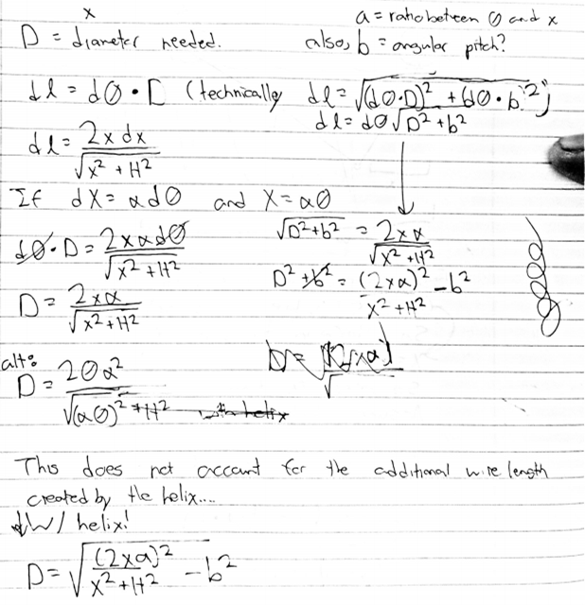 x
D = diameter needed.
a = ratio between θ and x
also, b = angular pitch?
dl = dθ • D (technically dl = √((dθ•D)² + (dθ•b)²))
dl = dθ√(D²+b²)
dl = 2x dx / √(x² + H²)
If dx = αdθ and x = αθ
√(D²+b²) = 2xα / √(x²+H²)
dθ•D = 2xαdθ / √(x²+H²)
D²+b² = (2xα)² / (x²+H²) - b²
D = 2xα / √(x²+H²)
alt:
D = 2θα² / √((αθ)²+H²)
This does not account for the additional wire length
created by the helix....
W/ helix!
D = √((2xα)² / (x²+H²) - b²)